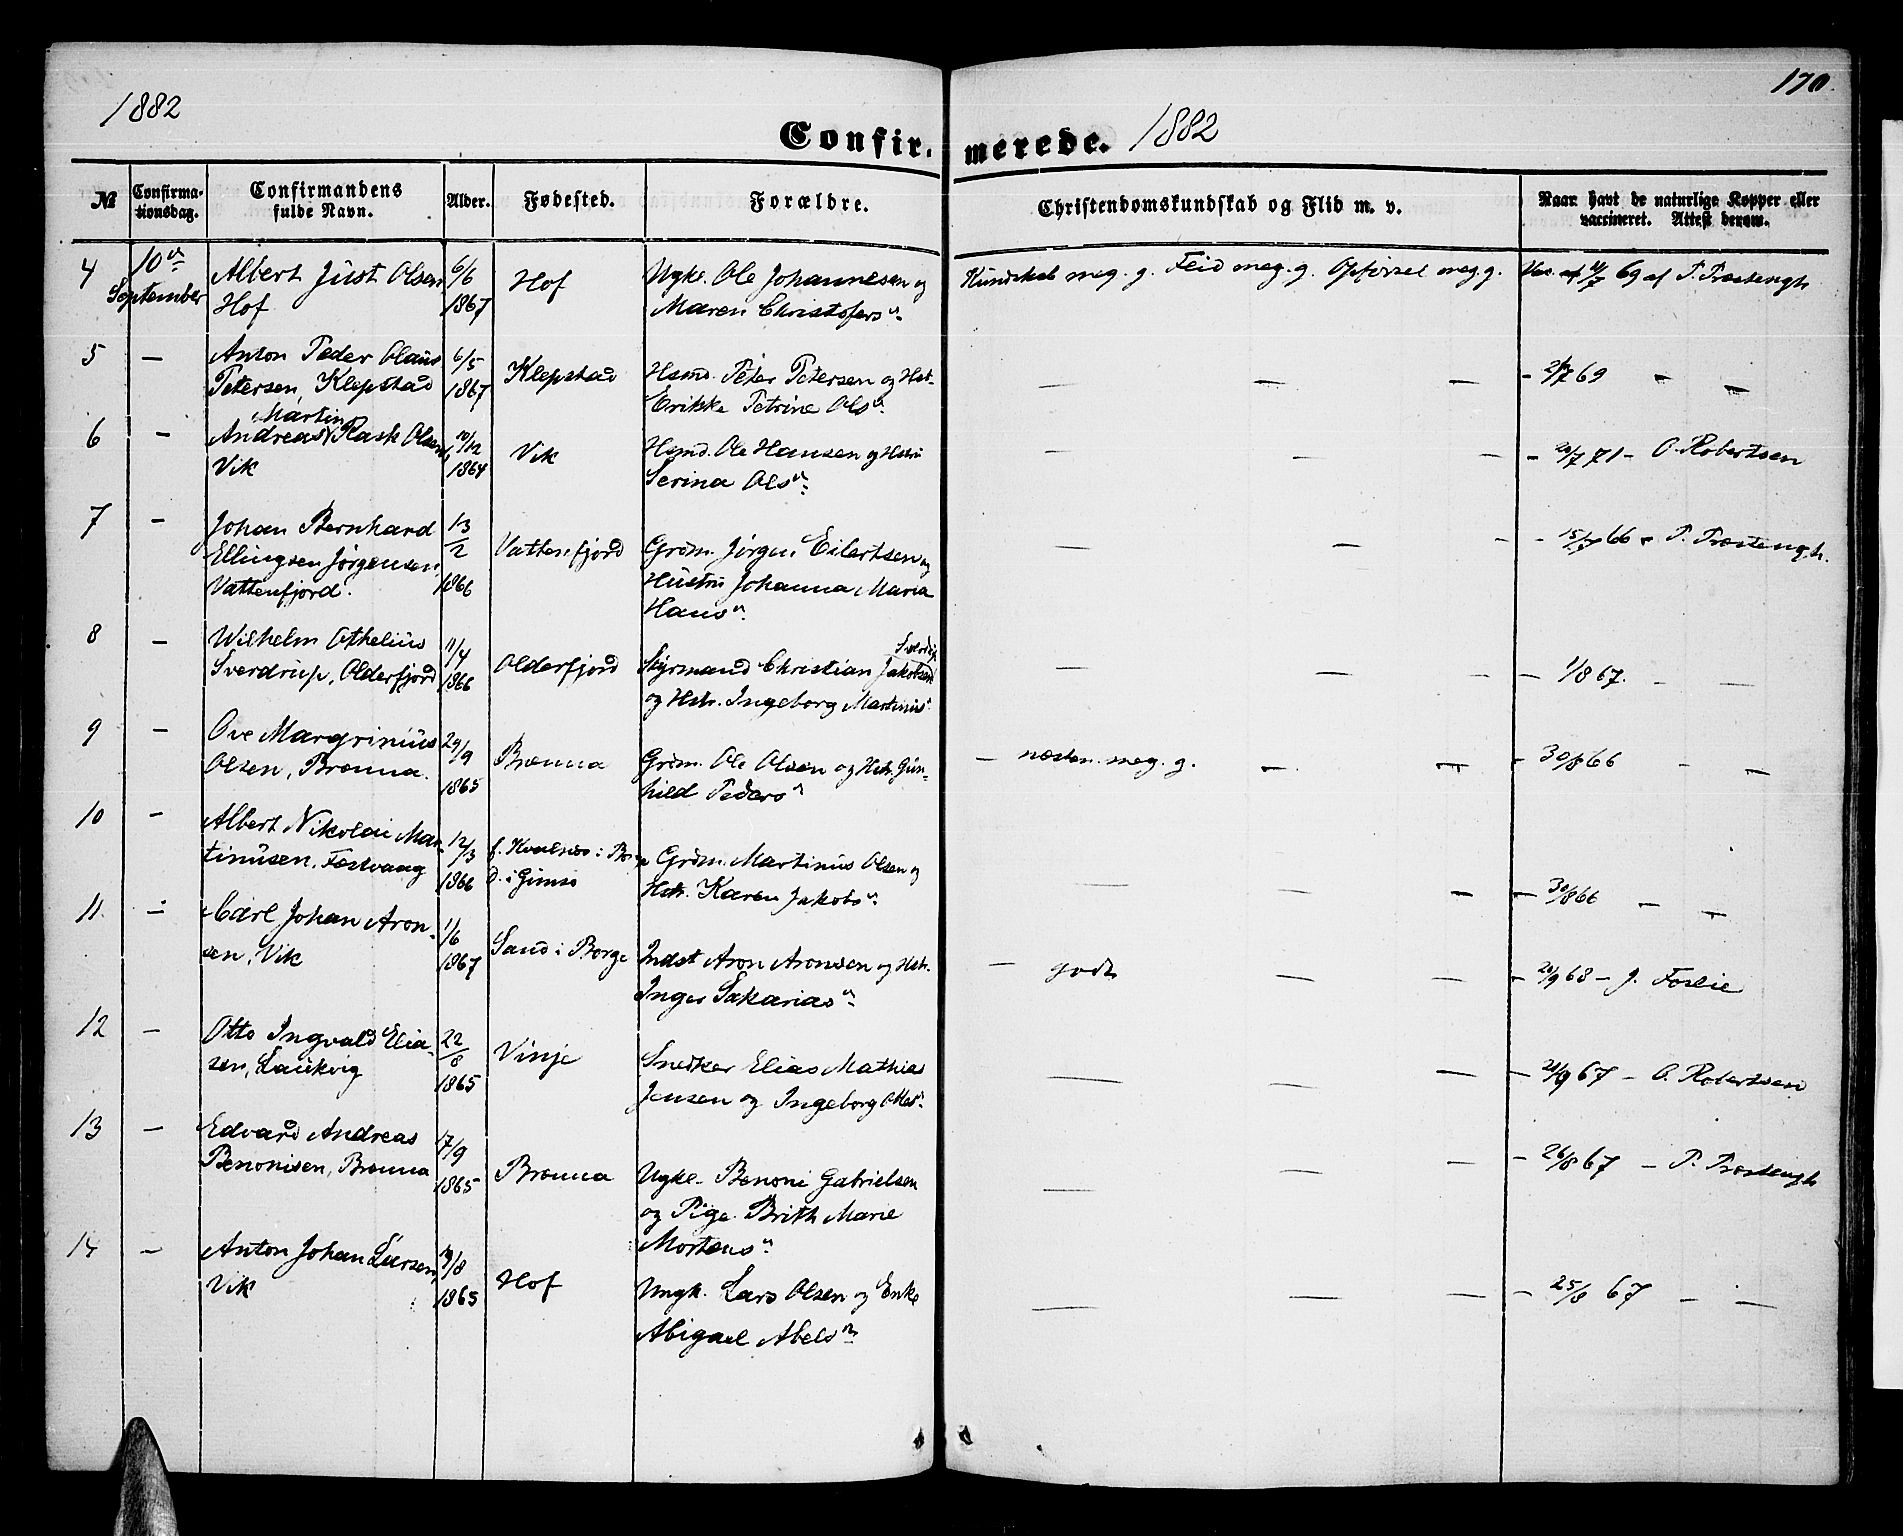 170.
1882
Confirmerede. 1882
No
Confirmationsdag.
Confirmandens fulde Navn.
Alder.
Fødested.
Forældre.
Christendomskundskab og Flid m. v.
Naar havt de naturlige Kopper eller vaccineret. Attest derom.
4
10de September
Albert Just Olsen
Hof
6/6 1867
Hof
Ugke. Ole Johannesen og
Maren Christofersd.
Kundskab meg. g. Flid meg. g. Opførsel meg. g.
69 af P. Præstengh
5 —
Anton Peder Olaus
Petersen, Klepstad
6/5 1867
Klepstad
Hsmd. Peter Petersen og Hst.
Erikke Petrine Olsd.
— — —
69 — —
6 —
Martin
Andreas Rask Olsen
Vik
1864
Vik
Hsmd. Ole Hansen og Hstru
Serina Olsd.
— — —
— 20/7 71 — O. Robertsen
7 —
Johan Bernhard
Ellingsen Jørgensen,
Vattenfjord.
13/2 1866
Vattenfjord
Grdm. Jørgen Eilertsen og
Hustru Johanna Maria
Hansd.
— — —
66 — P. Præstengh.
8 —
Wilhelm Othelius
Sverdrup, Olderfjord
11/4 1866
Olderfjord
Styrmand Christian Jakobsen
og Hstr. Ingeborg Martinusd.
— — —
— 1/8 67. — —
9 —
Ove Margrinius
Olsen, Brenna.
29/9 1865
Brenna
Grdm. Ole Olsen og Hstr. Gun-
hild Pedersd.
— næsten meg. g. — —
— 30/8 66 — —
10 —
Albert Nikolai Mar-
tinusen, Festvaag
12/3 1866
f. Hvalnes i Borge
D. i Gimsø
Grdm. Martinus Olsen og
Hstr. Karen Jakobsd.
— — —
— 30/8 66 — —
11. —
Carl Johan Aron-
sen, Vik
1/6 1867
Sand i Borge
Indst Aron Aronsen og Hstr.
Inger Sakariasd.
— godt — —
— 20/9 68 — J. Foslie
12 —
Otto Ingvald Elia-
sen, Laukvig
22/8 1865
Vinje
Snedker Elias Mathias
Jensen og Ingeborg
— — —
— 21/9 67 — O. Robertsen
13 —
Edvard Andreas
Benonisen, Brenna
17/9 1865
Brenna
Ugke. Benoni Gabrielsen
og Pige Brith Marie
Mortensd.
— — —
— 26/8 67 — P. Præstengh
14 —
Anton Johan Larsen,
Vik
1865
Hof
Ungk. Lars Olsen og Enke
Abigael Abelsd.
— — —
— 25/8 67 — —